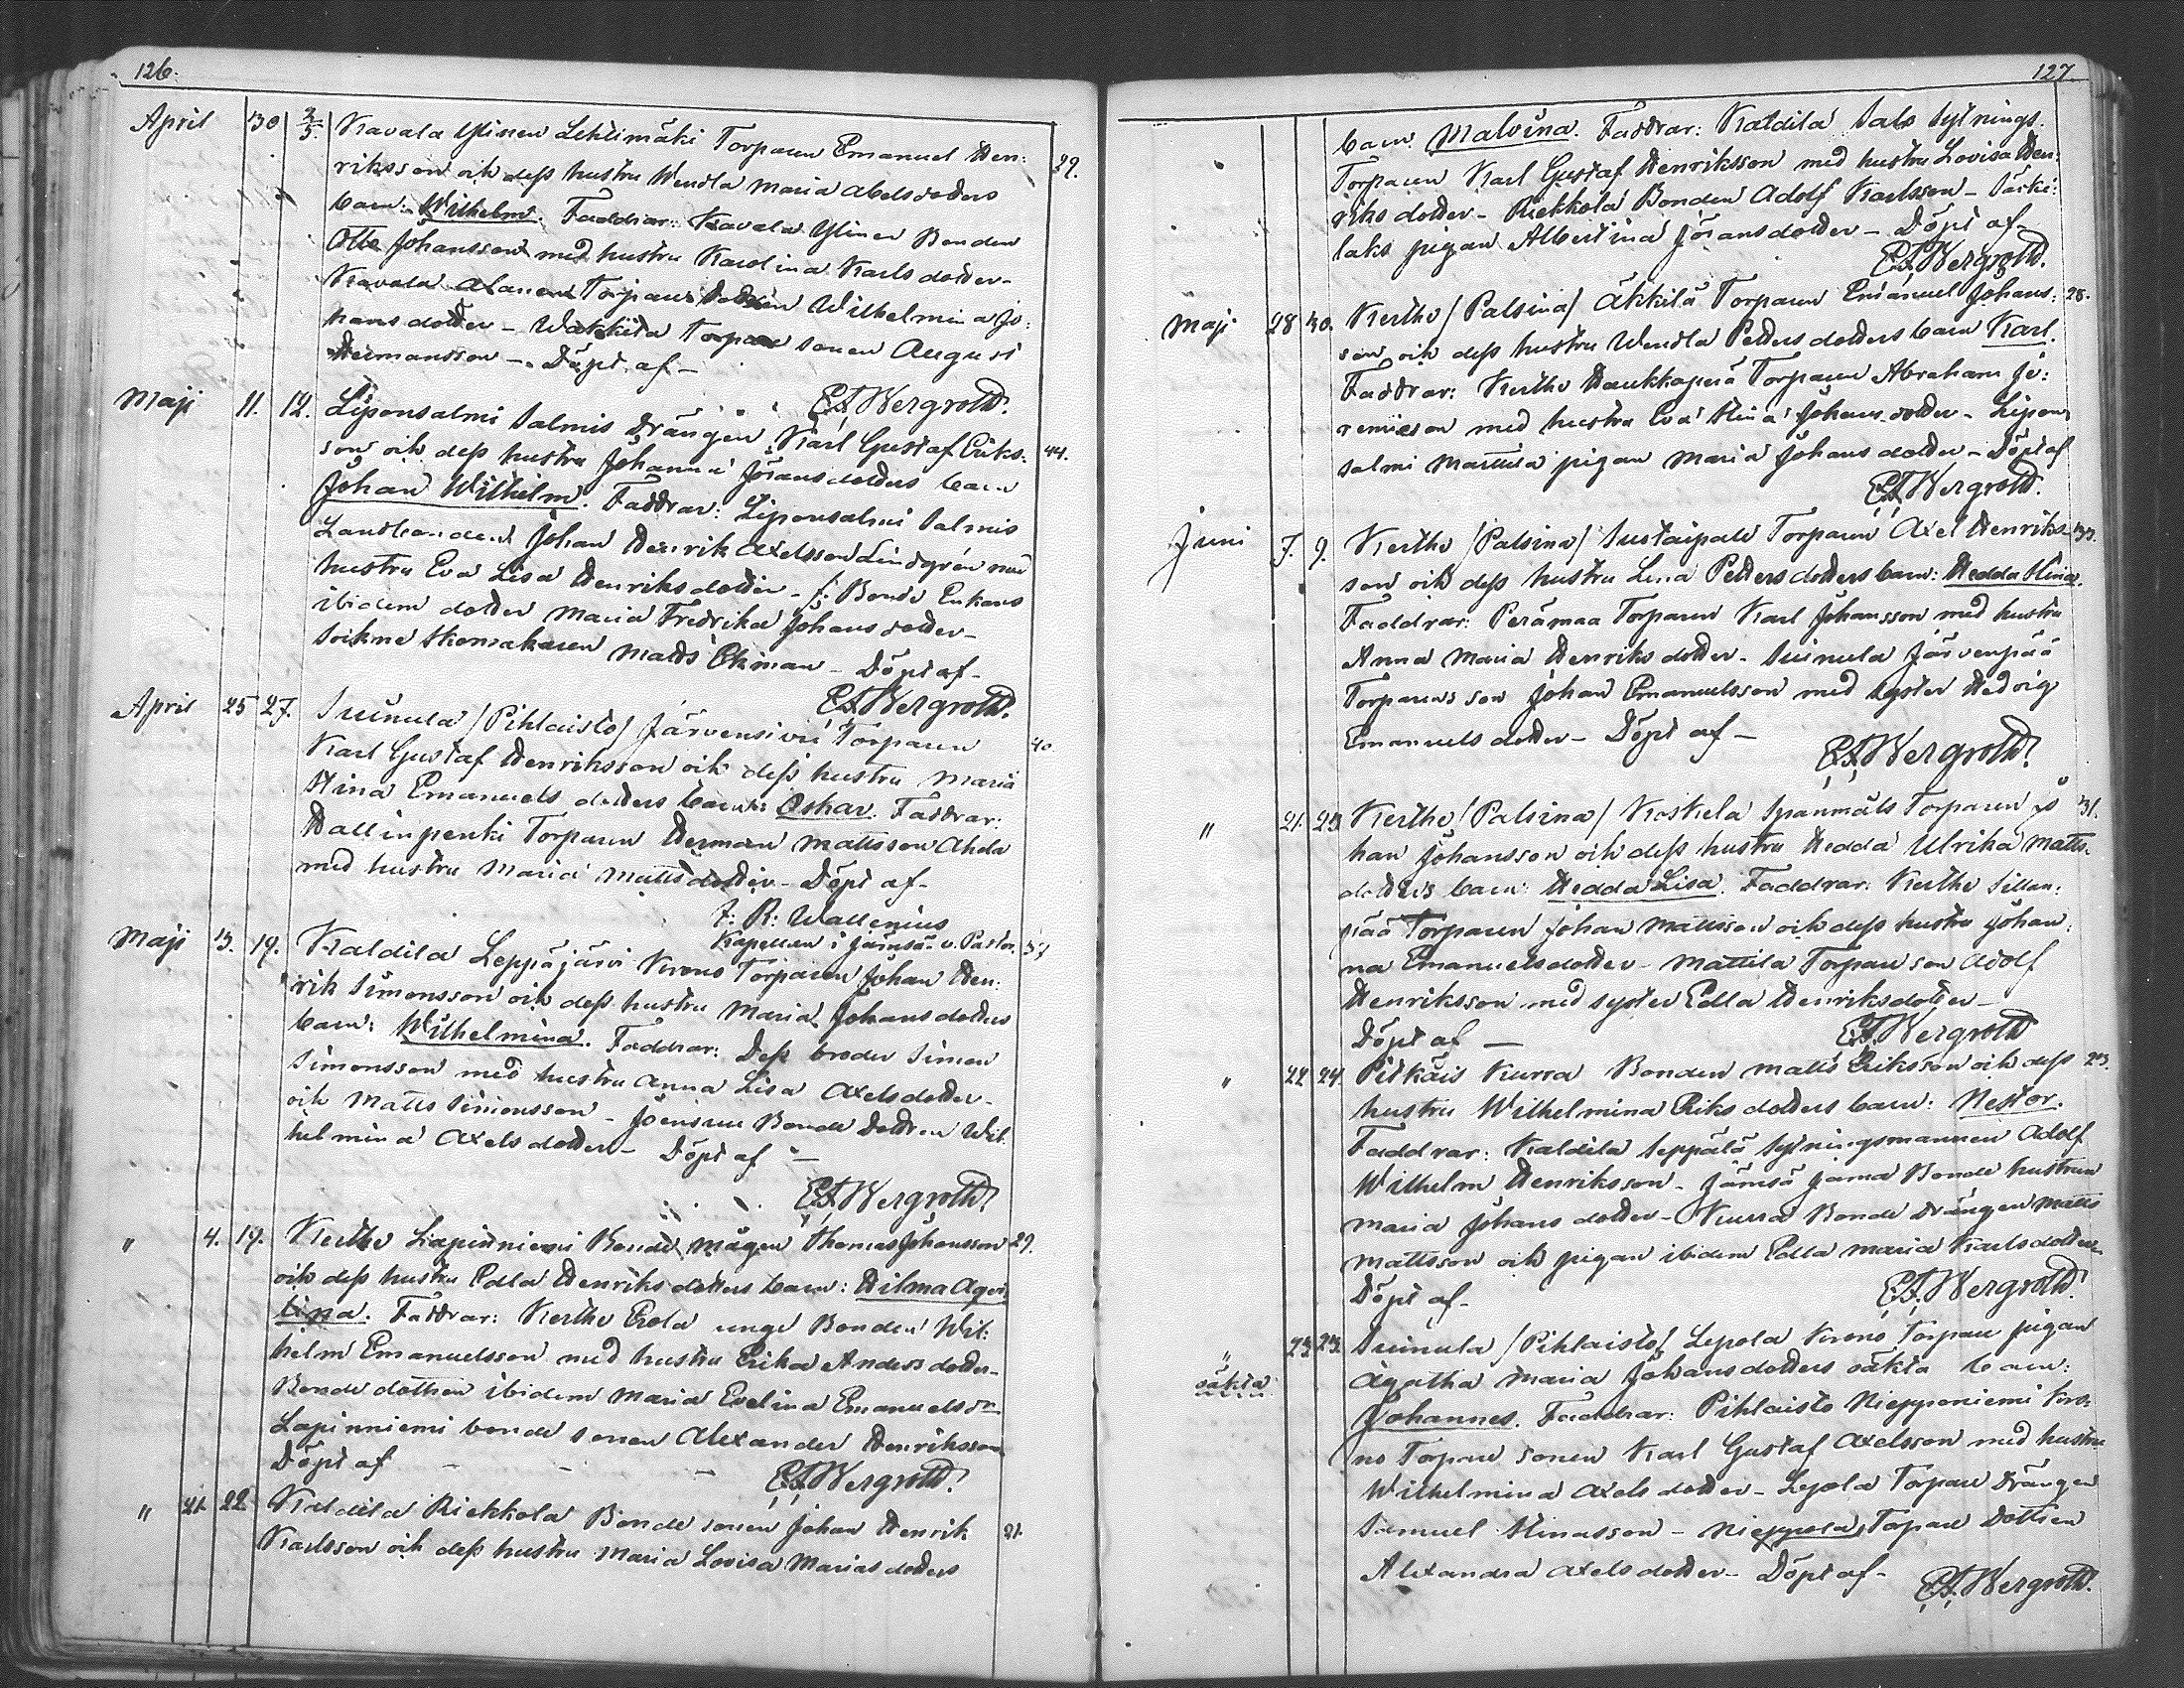 126.
April 30 2/5. Kavala Ylinen Lehtimäki Torparen Emanuel Hen:
riksson och dess hustru Wendla Maria Abelsdotters 29.
barn: Wilhelm. Faddrar: Kavala Ylinen Bonden
Otto Johansson med hustru Karolina Karlsdotter –
Kavala Alanen Torpare dottren Wilhelmina Jo:
hansdotter – Torpare sonen August
Hermansson – Döpt af –
E.F. Wergroth.
Maji 11. 12. Liponsalmi Salmis Drängen Karl Gustaf Eriks: 44.
son och dess hustru Johanna Jöransdotters barn
Johan Wilhelm. Faddrar: Liponsalmi Salmis
Landbonden Johan Henrik Axelsson Lindgrén med
hustru Eva Lisa Henriksdotter – f: Bonde Enkans
ibidem dotter Maria Fredrika Johansdotter –
Skomakaren Matts Ekman – Döpt af –
E.F. Wergroth.
April 25 27. Suinula /Pihlaisto/ Järvensivu Torparen
Karl Gustaf Henriksson och dess hustru Maria 40.
Stina Emanuels dotters barn: Oskar. Faddrar:
Hallinpenki Torparen Herman Mattsson Ahola
med hustru Maria Mattsdotter – Döpt af –
F: R: Wallenius
Kapellan i Jämsä. v. Pastor.
Maji 13. 19. Kaldila Leppäjärvi Krono Torparen Johan Hen:
rik Simonsson och dess hustru Maria Johansdotters
barn: Wilhelmina. Faddrar: Dess broder Simon
Simonsson med hustru Anna Lisa Axelsdotter –
och Matts Simonsson – Joensuu Bonde dottren Wil:
helmina Axelsdotter – Döpt af –
E.F. Wergroth.
" 4. 19. Kertho Lapinniemi Bonde mågen Thomas Johansson 29.
och dess hustru Edla Henriksdotters barn: Hilma Aqvi
lina. Faddrar: Kertho Erola unge Bonden Wil:
helm Emanuelsson med hustru Erika Andersdotter –
Bonde dottren ibidem Maria Evelina Emanuelsdr
Lapinniemi bonde sonen Alexander Henriksson
Döpt af – – –
E.F. Wergroth.
" 21. 22. Kaldila Riekkola Bonde sonen Johan Henrik
Karlsson och dess hustru Maria Lovisa Mariasdotters 21.
127.
barn Malvina. Faddrar: Kaldila Salo Sytnings
Torparen Karl Gustaf Henriksson med hustru Lovisa Hen:
riksdotter – Riekkola Bonden Adolf Karlsson – Särki:
laks pigan Albertina Jöransdotter – Döpt af –
E.F. Wergroth.
Maji 28 30. Kertho /Palsina/ Äkkilä Torparen Emanuel Johans: 28.
son och dess hustru Wendla Petters dotters barn Karl.
Faddrar: Kertho Haukkaperä Torparen Abraham Je:
remiesson med hustru Eva Stina Johansdotter – Lipon
salmi Mattila pigan Maria Johansdotter – Döpt af
E.F. Wergroth.
Juni 7. 9. Kertho /Palsina/ Sustaipale Torparen Axel Henriks: 33.
son och dess hustru Lena Pettersdotters barn: Hedda Stina.
Faddrar: Perämaa Torparen Karl Johansson med hustru
Anna Maria Henriksdotter – Suinula Järvenpää
Torparens son Johan Emanuelsson med syster Hedvig
Emanuelsdotter – Döpt af –
E.F. Wergroth.
" 21. 23. Kertho /Palsina/ Koskela Spanmåls Torparen Jo 31.
han Johansson och dess hustru Hedda Ulrika Matts:
dotters barn: Hedda Lisa. Faddrar: Kertho Sillan:
pää Torparen Johan Mattsson och dess hustru Johan:
na Emanuelsdotter – Mattila Torpare son Adolf
Henriksson med syster Edla Henriksdotter –
Döpt af –
E.F. Wergroth
" 22. 24. Pitkäis Kurra Bonden Matts Eriksson och dess 23.
hustru Wilhelmina Eriksdotters barn: Nestor.
Faddrar: Kaldila Seppälä Sytningsmannen Adolf
Wilhelm Henriksson – Jämsä Bonde hustrun
Maria Johansdotter – Kurra Bonde Drängen Matts
Mattsson och pigan ibidem Edla Maria Karlsdotter –
Döpt af –
E.F. Wergroth.
" 23. 23. Suinula /Pihlaisto/ Lepola Krono Torpare pigan
oäkta Agatha Maria Johansdotters oäkta barn:
Johannes. Faddrar: Pihlaisto Niepponiemi Kro:
no Torpare sonen Karl Gustaf Axelsson med hustru
Wilhelmina Axelsdotter – Lepola Torpare Drängen
Samuel Stinasson – Torpare dottren
Alexandra Axelsdotter – Döpt af –
E.F. Wergroth.